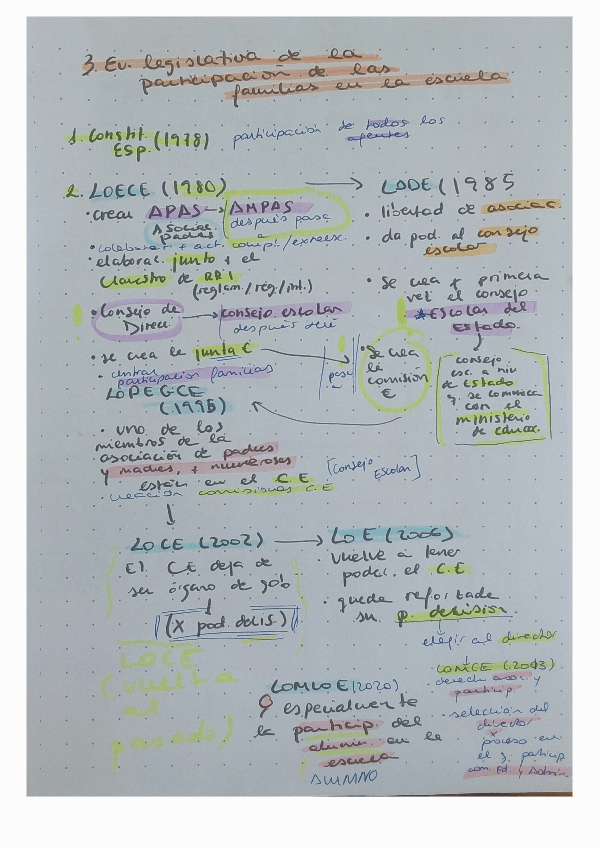 3. Ev. legislativa de la
participación de las
familias en la escuela
1. Constit.
Esp. (1978) participación de todos los
agentes
2. LOECE (1980) → LODE (1985
• crean APAS → AMPAS
Asociac. padres
después pasa a
• colaborar + act. compl/extraesc.
• elaborac. junto + el
Claustro de RRI
(reglam/rég/int.)
• Consejo de
Direcc → consejo escolar
después será
• se crea la junta C
• centran
participación familias
• libertad de asociac
• da pod. al consejo
escolar
• Se crea x primera
vez el consejo
*Escolar del
Estado
• Se crea
la
comisión
E
pasa a
consejo
esc. a niv
de Estado
q se comunica
con el
ministerio
de educac.
LOPEGCE
(1995)
• uno de los
miembros de la
asociación de padres
y madres, + numerosas
están en el C.E [Consejo
Escolar]
• creación comisiones C.E
LOCE (2002) → LOE (2006)
El C.E deja de
ser órgano de gob
(x pod. decis)
LOCE
(vuelta
al
pasado)
• vuelve a tener
poder el C.E
• queda reforzada
su p. decisión
elegir al director
LOMCE (2013)
derech asoc. y
particip.
• selección del
director
x
proceso en
el q particip
com Ed. y Admin.
LOMLOE (2020)
especialmente
la particip. del
alumn. en la
escuela
ALUMNO